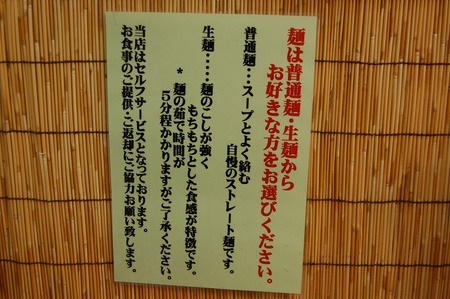 麺は普通麺・生麺から
お好きな方をお選びください。
普通麺・・・スープとよく絡む
自慢のストレート麺です。
生麺・・・・・麺のこしが強く
もちもちとした食感が特徴です。
*麺の茹で時間が
5分程かかりますがご了承ください。
当店はセルフサービスとなっております。
お食事のご提供・ご返却にご協力お願い致します。